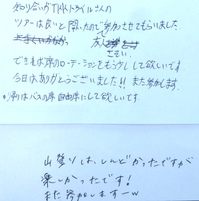 知り合いがTHKトライルさんの
ツアーは良いと聞いたので参加させてもらいました
できれば席のローテーションをもう少しして欲しいです
今日はありがとうございました!!また参加します
次はバスの席自由席にして欲しいです
山登りは、しんどかったですが
楽しかったです!
また参加しまーす